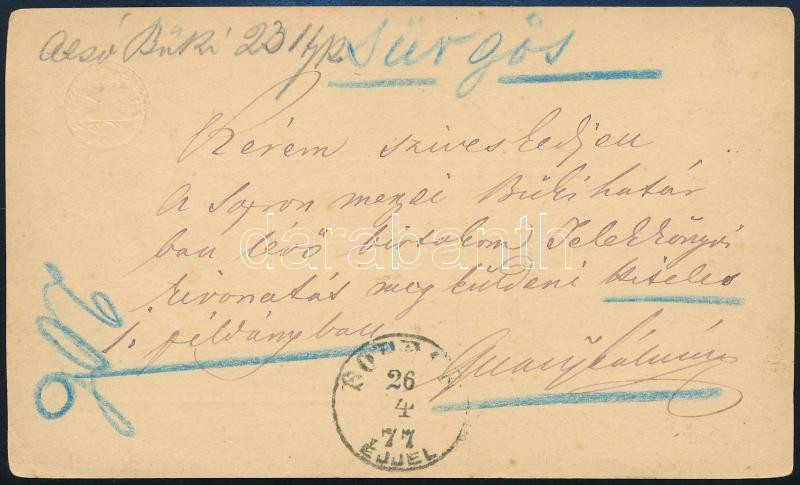 Alsó Büki 23 tjk. Sürgős
Kérem sziveskedjen
a Sopron megyei Büki határ
ban lévő birtokom Telekkönyvi
kivonatát megküldeni hiteles
1. példányban
26
4
77
ÉJJEL
darabanth